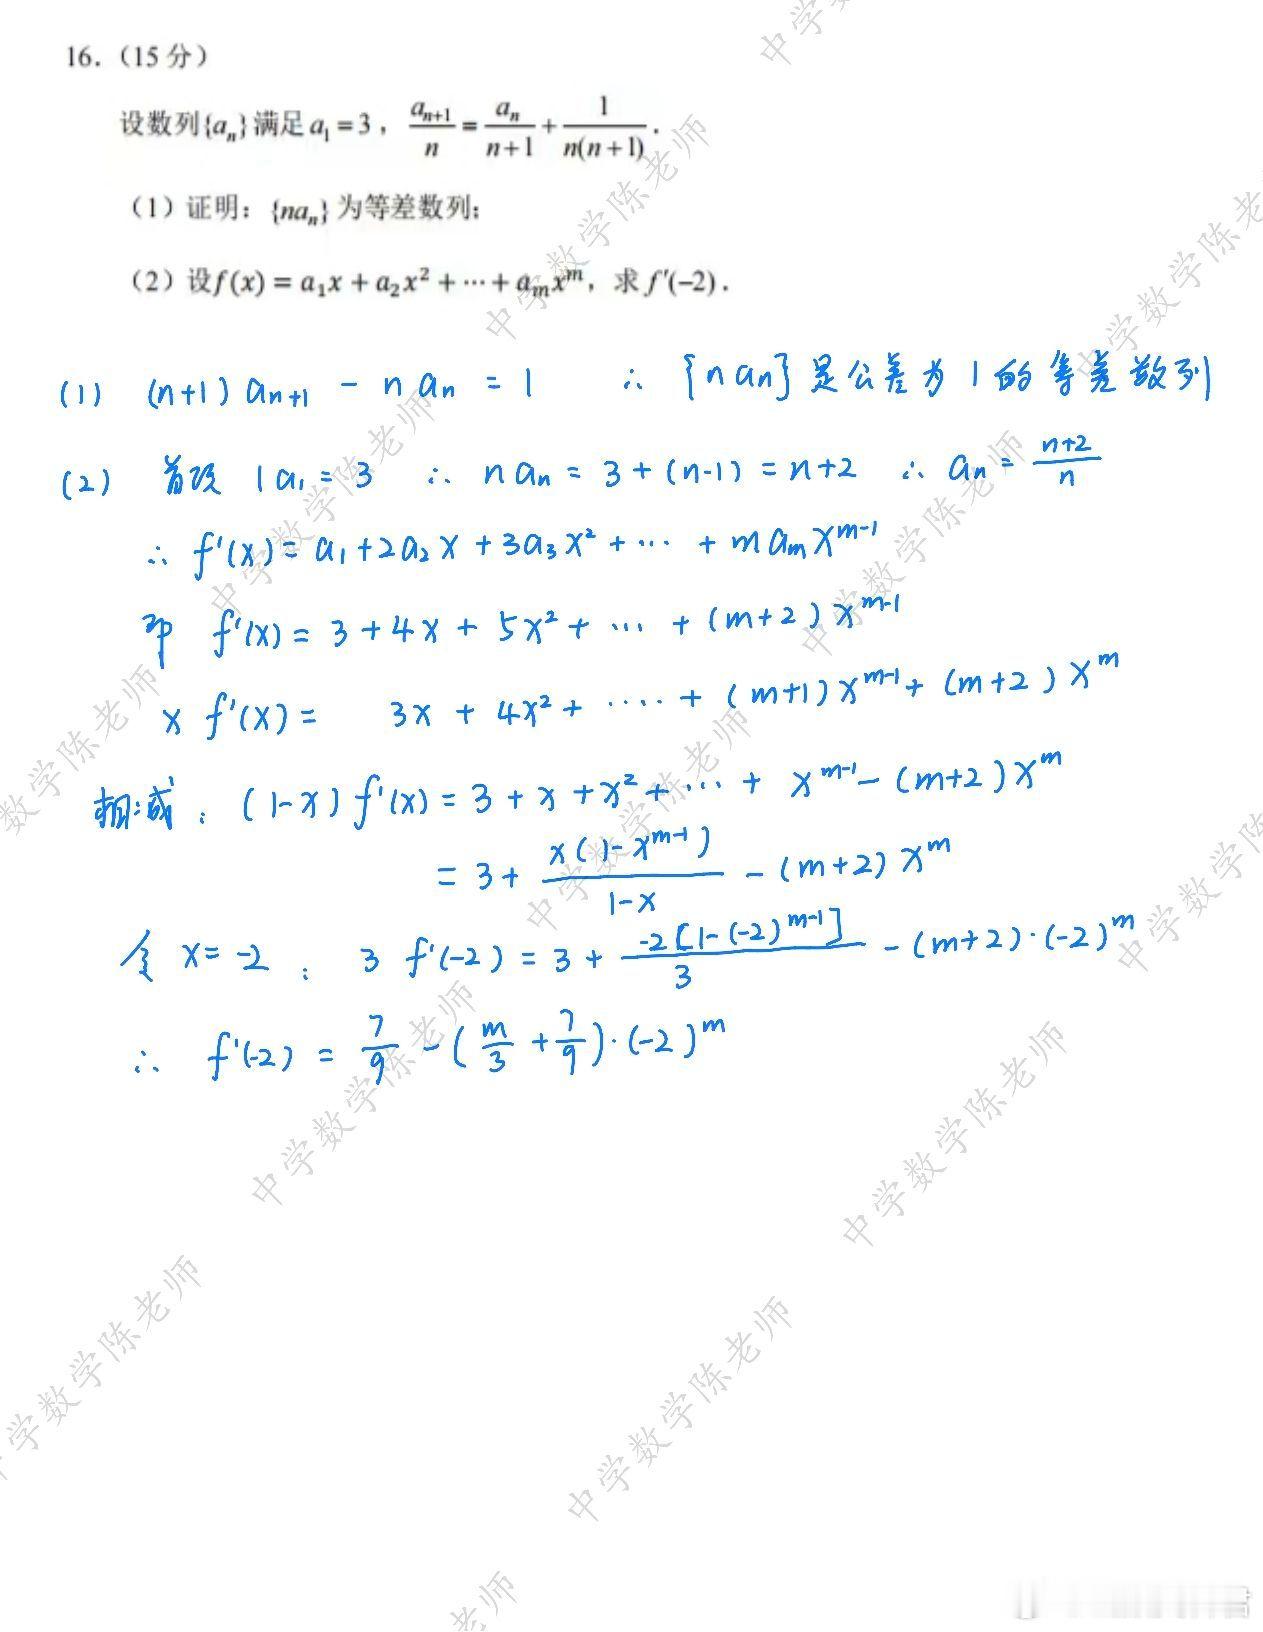 16.（15 分）
设数列{aₙ}满足 a₁ = 3，aₙ₊₁/n = aₙ/(n+1) + 1/(n(n+1)).
（1）证明：{naₙ} 为等差数列；
（2）设f(x) = a₁x + a₂x² + ⋯ + aₘxᵐ，求 f′(−2).
(1) (n+1) aₙ₊₁ − n aₙ = 1 ∴ {n aₙ} 是公差为 1 的等差数列
(2) 首项 1a₁ = 3 ∴ n aₙ = 3 + (n-1) = n+2 ∴ aₙ = (n+2)/n
∴ f'(x) = a₁ + 2a₂x + 3a₃x² + ⋯ + m aₘ xᵐ⁻¹
即 f'(x) = 3 + 4x + 5x² + ⋯ + (m+2) xᵐ⁻¹
x f'(x) = 3x + 4x² + ⋯⋯ + (m+1) xᵐ⁻¹ + (m+2) xᵐ
相减: (1-x) f'(x) = 3 + x + x² + ⋯ + xᵐ⁻¹ − (m+2) xᵐ
= 3 + x(1-xᵐ⁻¹)/(1-x) − (m+2) xᵐ
令 x = -2 : 3 f'(-2) = 3 + -2[1-(-2)ᵐ⁻¹]/3 − (m+2)·(-2)ᵐ
∴ f'(-2) = 7/9 − (m/3 + 7/9)·(-2)ᵐ
中学数学陈老师